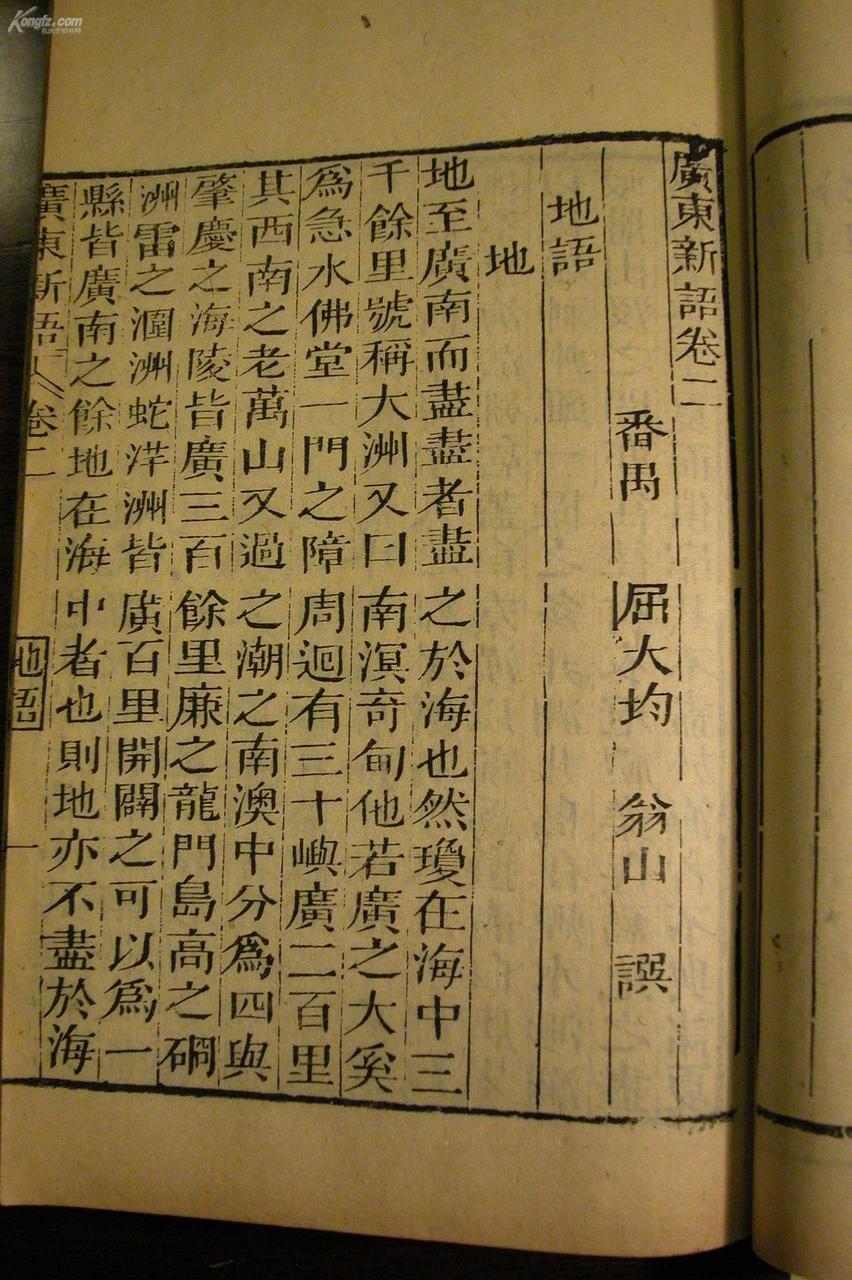 Kongfz.com
廣東新語卷二
番禺 屈大均 翁山 譔
地語
地
地至廣南而盡盡者盡之於海也然瓊在海中三
千餘里號稱大洲又曰南溟奇甸他若廣之大奚
為急水佛堂一門之障周迴有三十嶼廣二百里
其西南之老萬山又過之潮之南澳中分為四與
肇慶之海陵皆廣三百餘里廉之龍門島高之硇
洲雷之潿洲蛇洋洲皆廣百里開闢之可以為一
縣皆廣南之餘地在海中者也則地亦不盡於海
廣東新語 卷二 地語 一